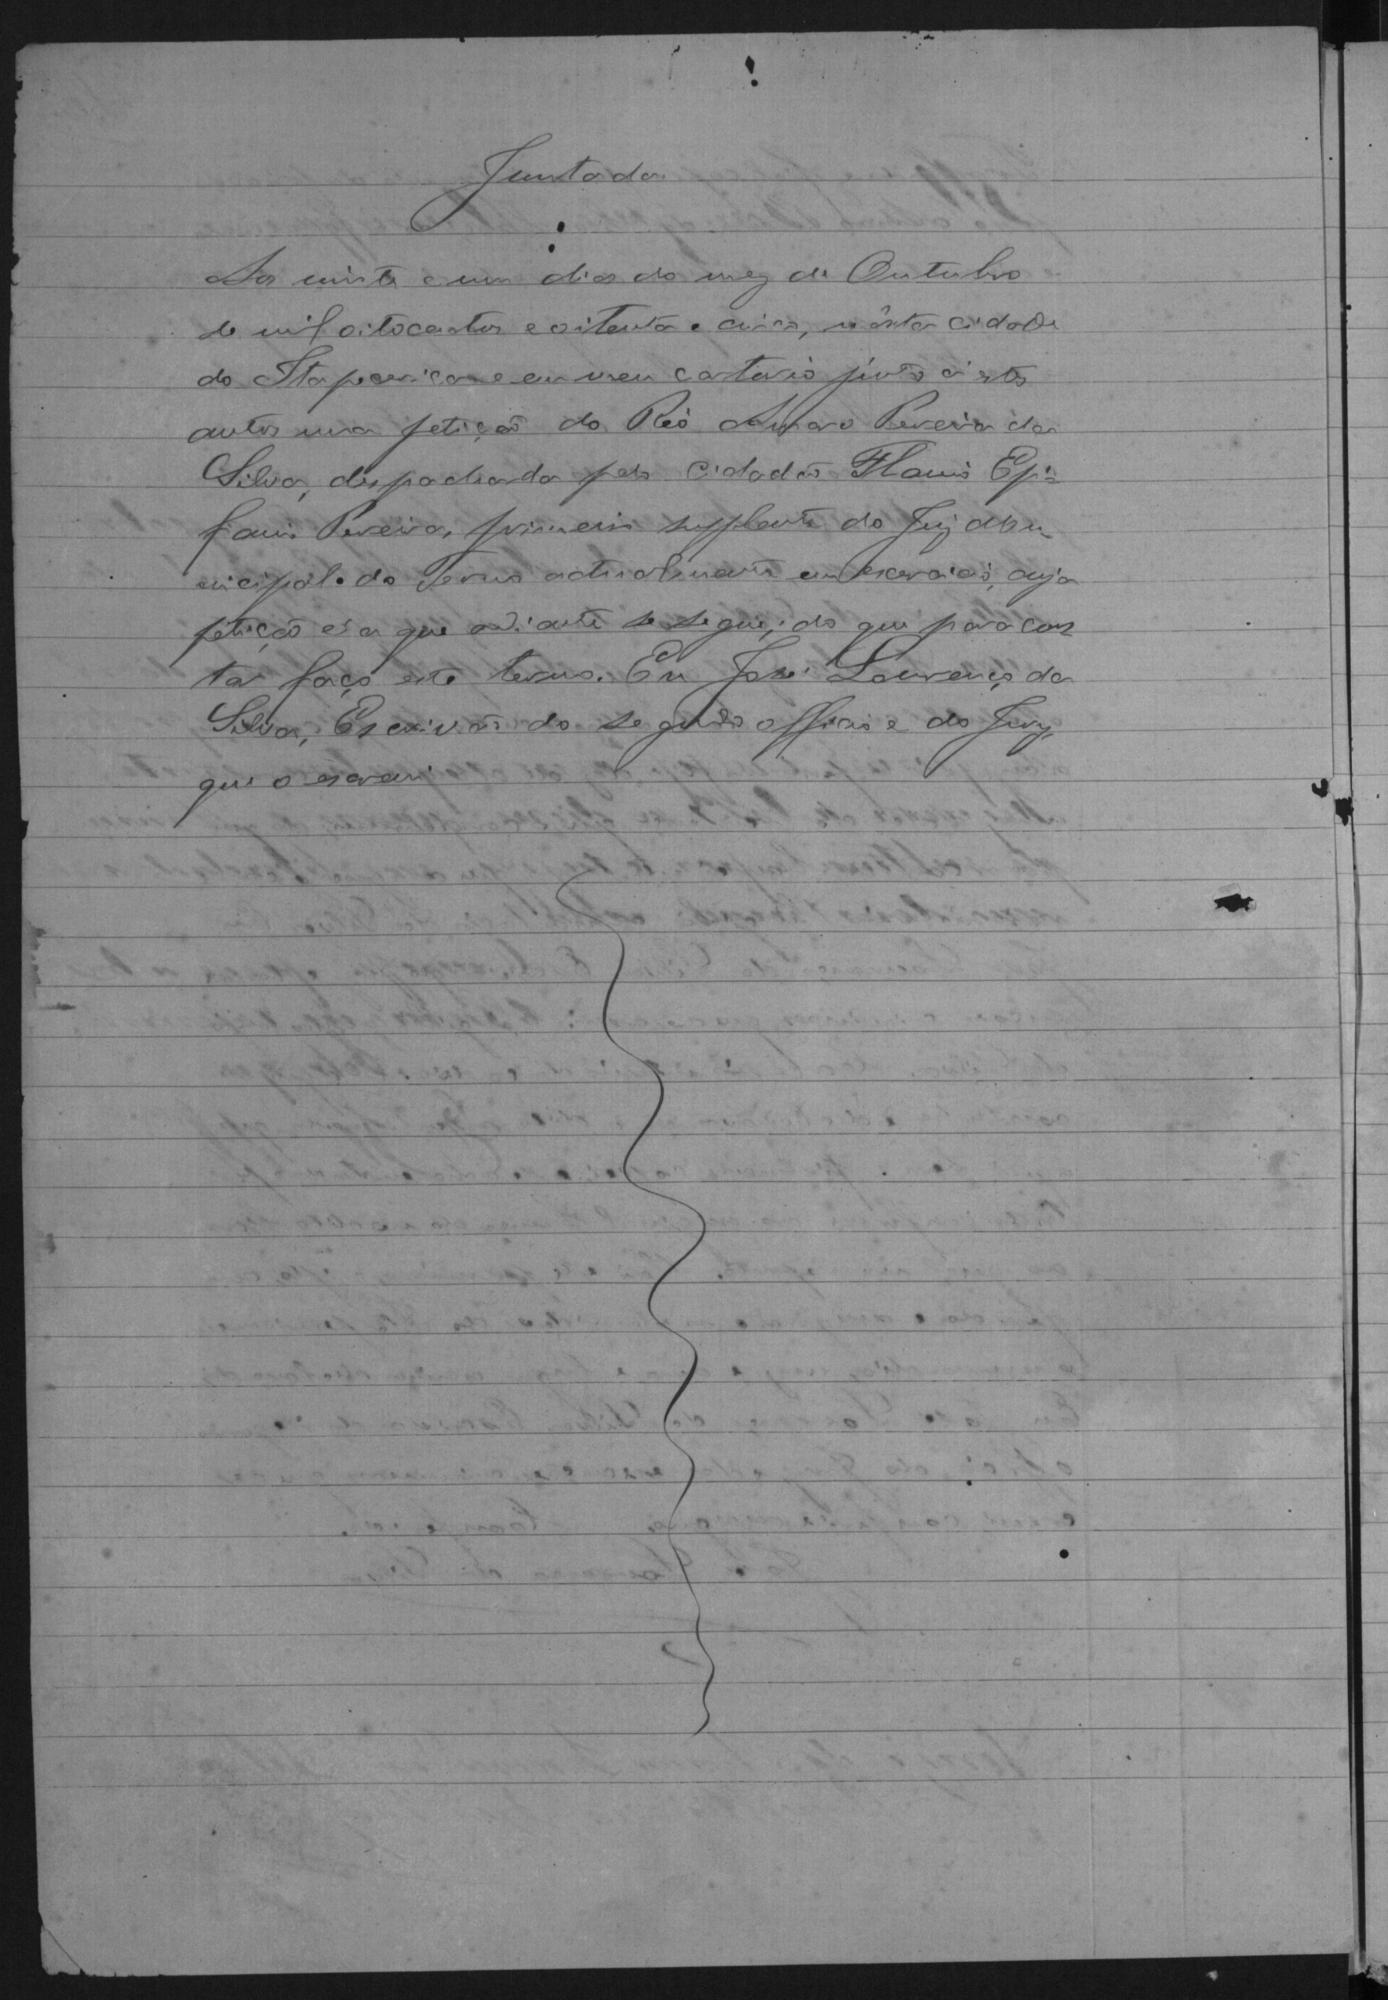 Juntada
Aos vinte e um dias do mez de Outubro
de mil oitocentos e oitenta e cinco, n'esta cidade
do Itapecerica e em meu cartorio junto á estes
autos uma petição do Réo Amaro Pereira da
Silva, despachada pelo cidadão Flavio Epi=
fanio Pereira, primeiro supplente do Juiz Mu
nicipal do Termo actualmente em exercicio, cuja
petição é a que adiante se segue; do que para cons
tar faço este termo. Eu José Lourenço da
Silva, Escrivão do segundo officio e do Jury,
que o escrevi